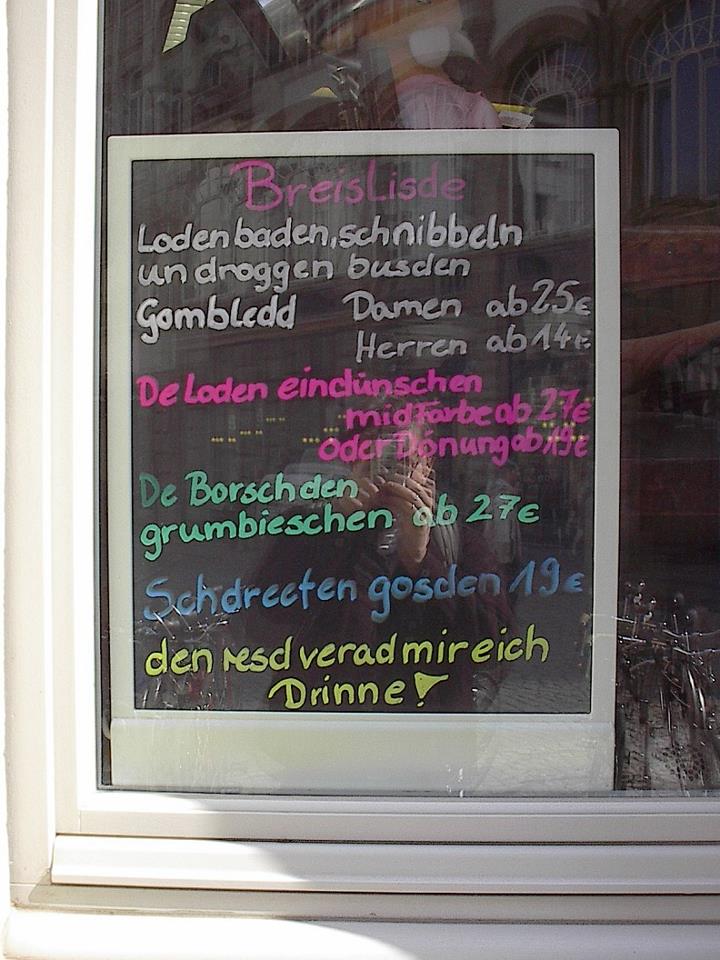 BreisLisde
Loden baden, schnibbeln
un droggen busden
Gombledd Damen ab 25€
Herren ab 14€
De Loden eindünschen
mid Farbe ab 27€
oder Dönung ab 19€
De Borschden
grumbieschen ab 27€
Schdreefen gosden 19€
den resd verad mir eich
Drinne!